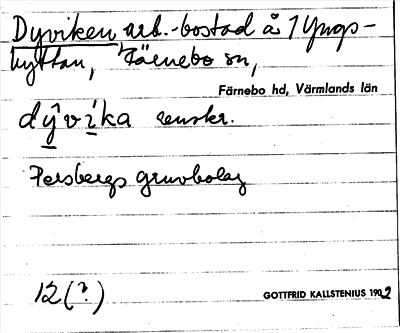 Dyviken arb.-bostad å 1 Yngs-
hyttan, Färnebo sn,
Färnebo hd, Värmlands län
dŷvíka renskr.
Persbergs gruvbolag
12(?)
GOTTFRID KALLSTENIUS 1902